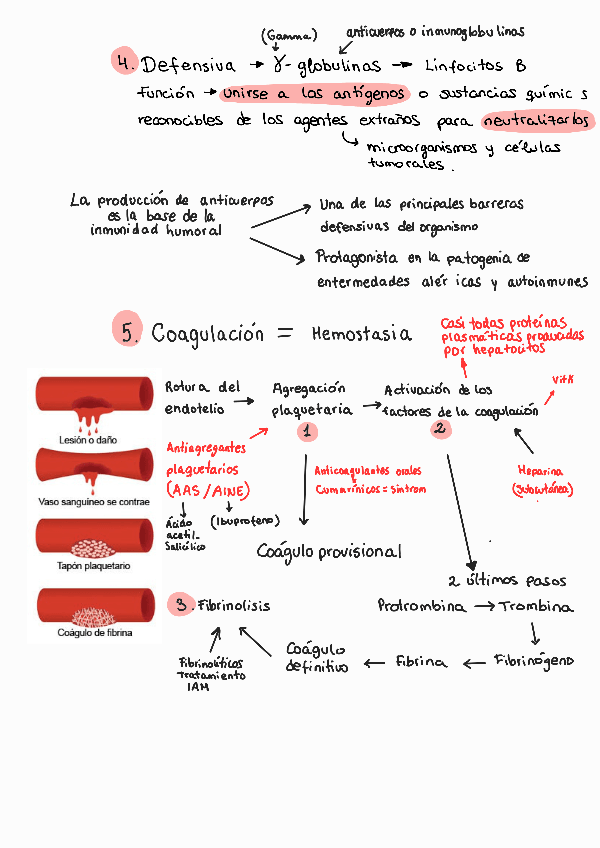 (Gamma)
anticuerpos o inmunoglobulinas
4. Defensiva → γ- globulinas → Linfocitos B
Función → unirse a los antígenos o sustancias químic s
reconocibles de los agentes extraños para neutralizarlos
↳ microorganismos y células
tumorales.
La producción de anticuerpos
es la base de la
inmunidad humoral
Una de las principales barreras
defensivas del organismo
Protagonista en la patogenia de
enfermedades alér icas y autoinmunes
5. Coagulación = Hemostasia
Casi todas proteínas
plasmáticas producidas
por hepatocitos
Vit K
Rotura del
endotelio
→ Agregación
plaquetaria
1
→ Activación de los
factores de la coagulación
2
Lesión o daño
Vaso sanguíneo se contrae
Tapón plaquetario
Coágulo de fibrina
Antiagregantes
plaquetarios
(AAS / AINE)
Ácido
acetil-
Salicílico
(Ibuprofeno)
Anticoagulantes orales
Cumarínicos = Sintrom
Heparina
(subcutánea)
Coágulo provisional
2 últimos pasos
Protrombina → Trombina
3. Fibrinolisis
Fibrinógeno
← Fibrina ←
Coágulo
definitivo
Fibrinolíticos
Tratamiento
IAM